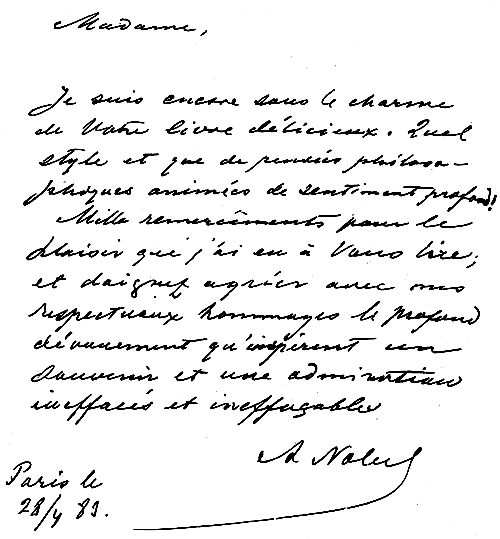 Madame,
Je suis encore sous le charme
de Votre livre délicieux. Quel
style et que de pensées philoso-
phiques animées de sentiment profond!
Mille remercîments pour le
plaisir que j'ai eu à Vous lire;
et daignez agréer avec mes
respectueux hommages le profond
dévouement qu'inspirent un
souvenir et une admiration
ineffacés et ineffaçables
A Nobel
Paris le
28/4 89.